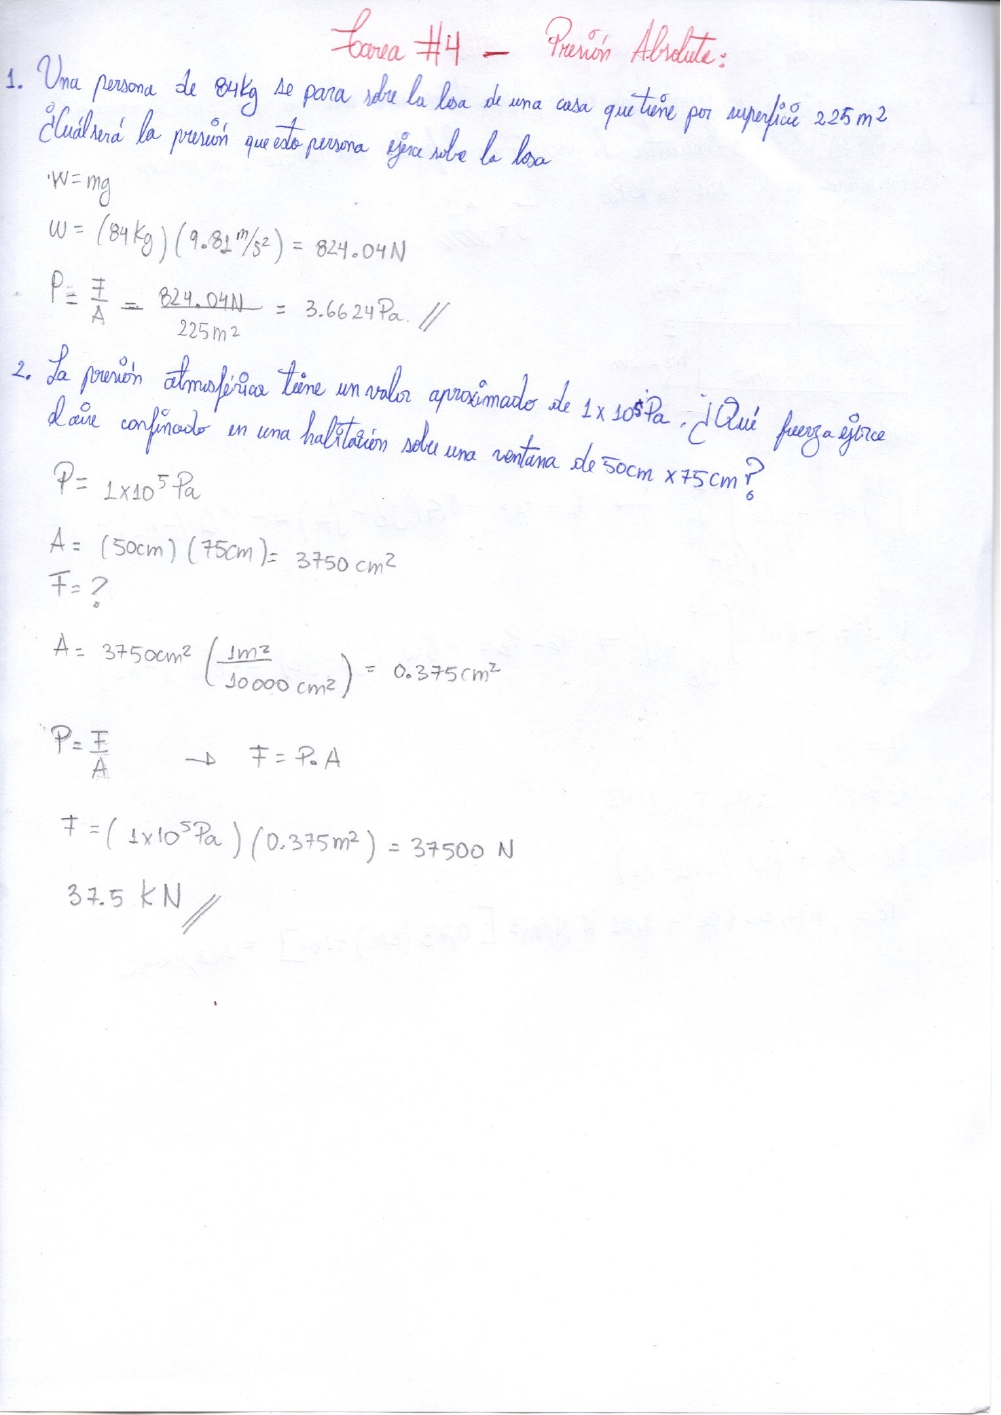 Tarea #4 - Presión Absoluta:
1. Una persona de 84Kg se para sobre la losa de una casa que tiene por superficie 225m²
¿Cuál será la presión que esta persona ejerce sobre la losa
W=mg
W= (84Kg)(9.81 m/s²) = 824.04N
P= F/A = 824.04N/225m² = 3.6624Pa. //
2. La presión atmosférica tiene un valor aproximado de 1x10⁵Pa. ¿Qué fuerza ejerce
el aire confinado en una habitación sobre una ventana de 50cm x75cm?
P= 1x10⁵Pa
A= (50cm)(75cm)= 3750cm²
F=?
A= 3750cm² (1m²/10000cm²) = 0.375cm²
P= F/A → F= P.A
F=(1x10⁵Pa)(0.375m²) = 37500 N
37.5 KN //